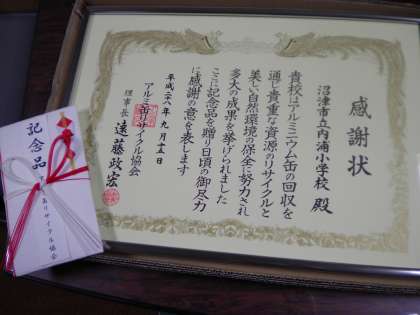 感謝状
沼津市立内浦小学校 殿
貴校はアルミニウム缶の回収を
通じ貴重な資源のリサイクルと
美しい自然環境の保全に努力され
多大の成果を挙げられました
ここに記念品を贈り日頃の御尽力
に感謝の意を表します
平成二八年九月十五日
アルミ缶リサイクル協会
理事長 遠藤政宏
記念品
缶リサイクル協会